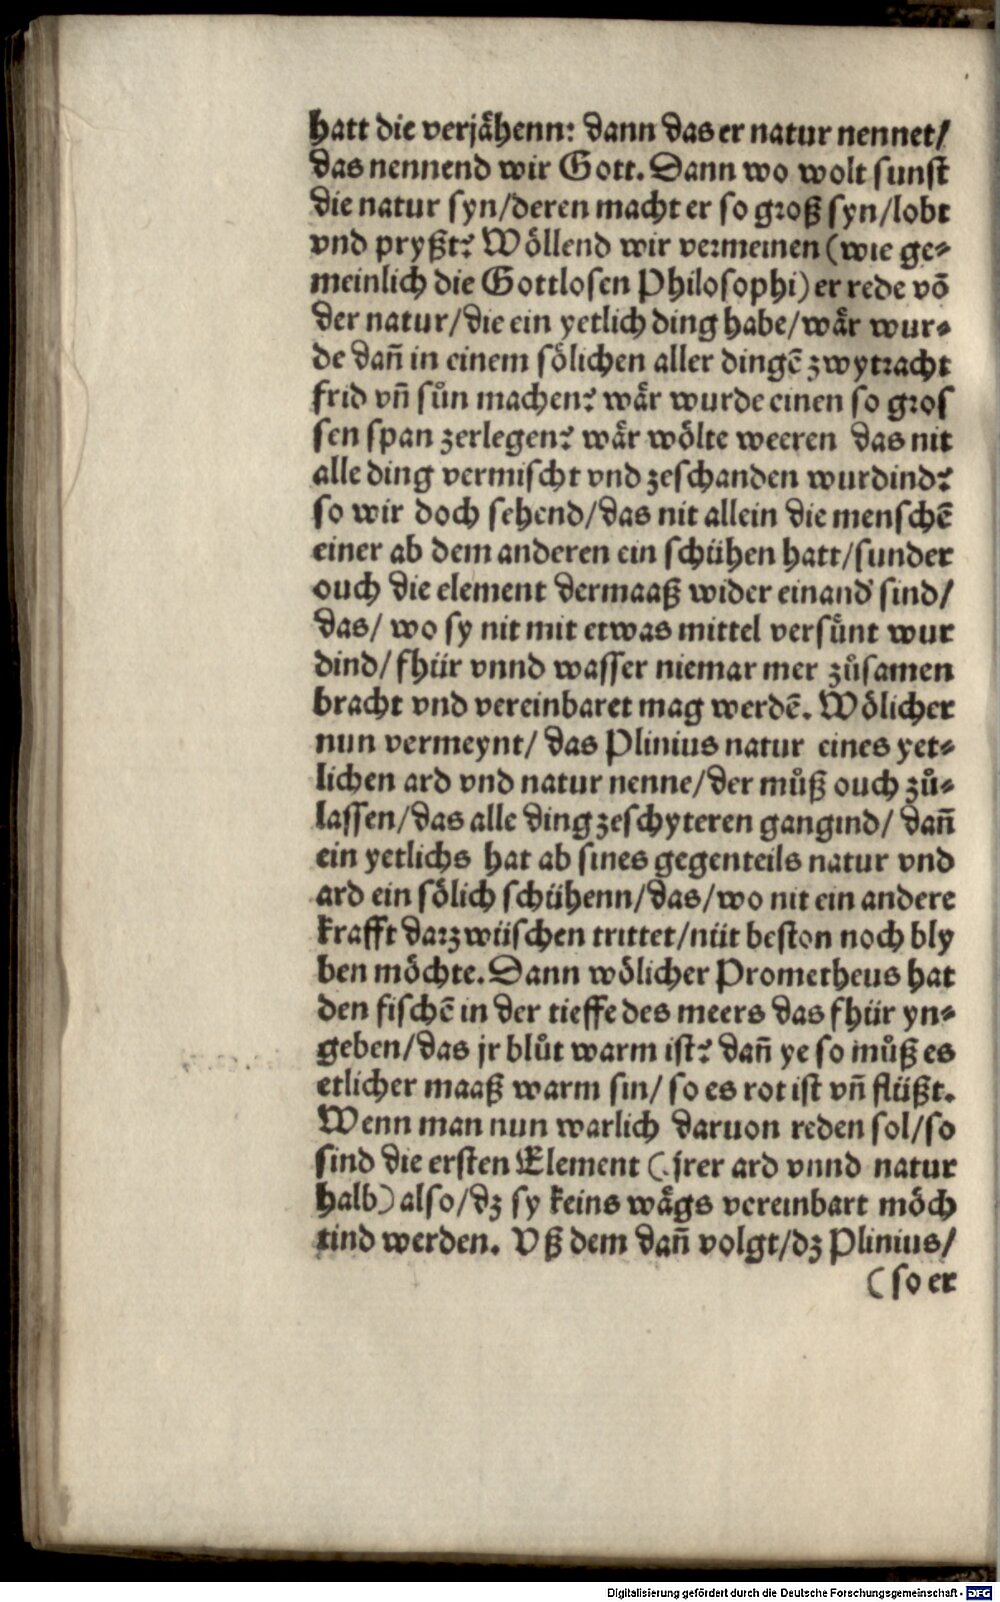 hatt die verjåhenn: dann das er natur nennet/
das nennend wir Gott. Dann wo wolt sunst
die natur syn/deren macht er so groß syn/lobt
vnd pryßt? Wöllend wir vermeinen (wie ge⸗
meinlich die Gottlosen Philosophi) er rede võ
der natur/die ein yetlich ding habe/wår wur⸗
de dañ in einem sölichen aller dingẽ zwytracht
frid vñ sůn machen? wår wurde einen so gros
sen span zerlegen? wår wölte weeren das nit
alle ding vermischt vnd zeschanden wurdind?
so wir doch sehend/das nit allein die menschẽ
einer ab dem anderen ein schühen hatt/sunder
ouch die element dermaaß wider einand' sind/
das/ wo sy nit mit etwas mittel versůnt wur
dind/fhür vnnd wasser niemar mer zůsamen
bracht vnd vereinbaret mag werdẽ. Wölicher
nun vermeynt/ das Plinius natur eines yet⸗
lichen ard vnd natur nenne/der můß ouch zů⸗
lassen/das alle ding zeschyteren gangind/ dañ
ein yetlichs hat ab sines gegenteils natur vnd
ard ein sölich schühenn/das/wo nit ein andere
krafft darzwüschen trittet/nüt beston noch bly
ben möchte. Dann wölicher Prometheus hat
den fischẽ in der tieffe des meers das fhür yn⸗
geben/das jr blůt warm ist? dañ ye so můß es
etlicher maaß warm sin/ so es rot ist vñ flüßt.
Wenn man nun warlich daruon reden sol/so
sind die ersten Element (jrer ard vnnd natur
halb) also/dz sy keins wågs vereinbart möch
tind werden. Vß dem dañ volgt/dz Plinius/
(so er
Digitalisierung gefördert durch die Deutsche Forschungsgemeinschaft - DFG